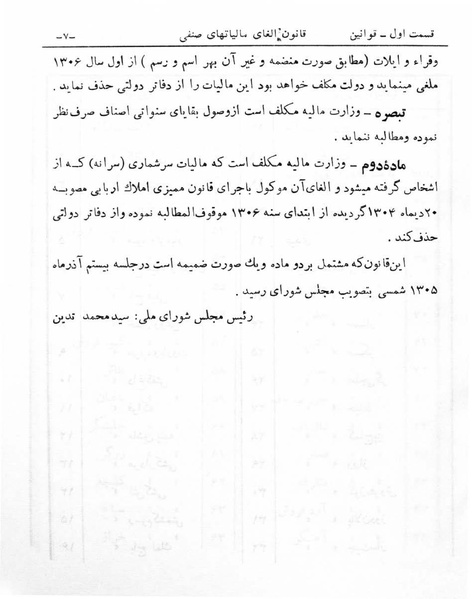 قسمت اول ـ قوانین قانون الغای مالیاتهای صنفی ـ۷ـ
وقراء و ایلات (مطابق صورت منضمه و غیر آن بهر اسم و رسم ) از اول سال ۱۳۰۶
ملغی مینماید و دولت مکلف خواهد بود این مالیات را از دفاتر دولتی حذف نماید .
تبصره ـ وزارت مالیه مکلف است ازوصول بقایای سنواتی اصناف صرف نظر
نموده ومطالبه ننماید .
مادهٔ دوم ـ وزارت مالیه مکلف است که مالیات سرشماری (سرانه) کـه از
اشخاص گرفته میشود و الغای آن موکول باجرای قانون ممیزی املاك اربابی مصوبـه
۲۰دیماه ۱۳۰۴گردیده از ابتدای سنه ۱۳۰۶ موقوف المطالبه نموده واز دفاتر دولتی
حذف کند .
این قانون که مشتمل بردو ماده ویك صورت ضمیمه است درجلسه بیستم آذرماه
۱۳۰۵ شمسی بتصویب مجلس شورای رسید .
رئیس مجلس شورای ملی: سیدمحمد تدین